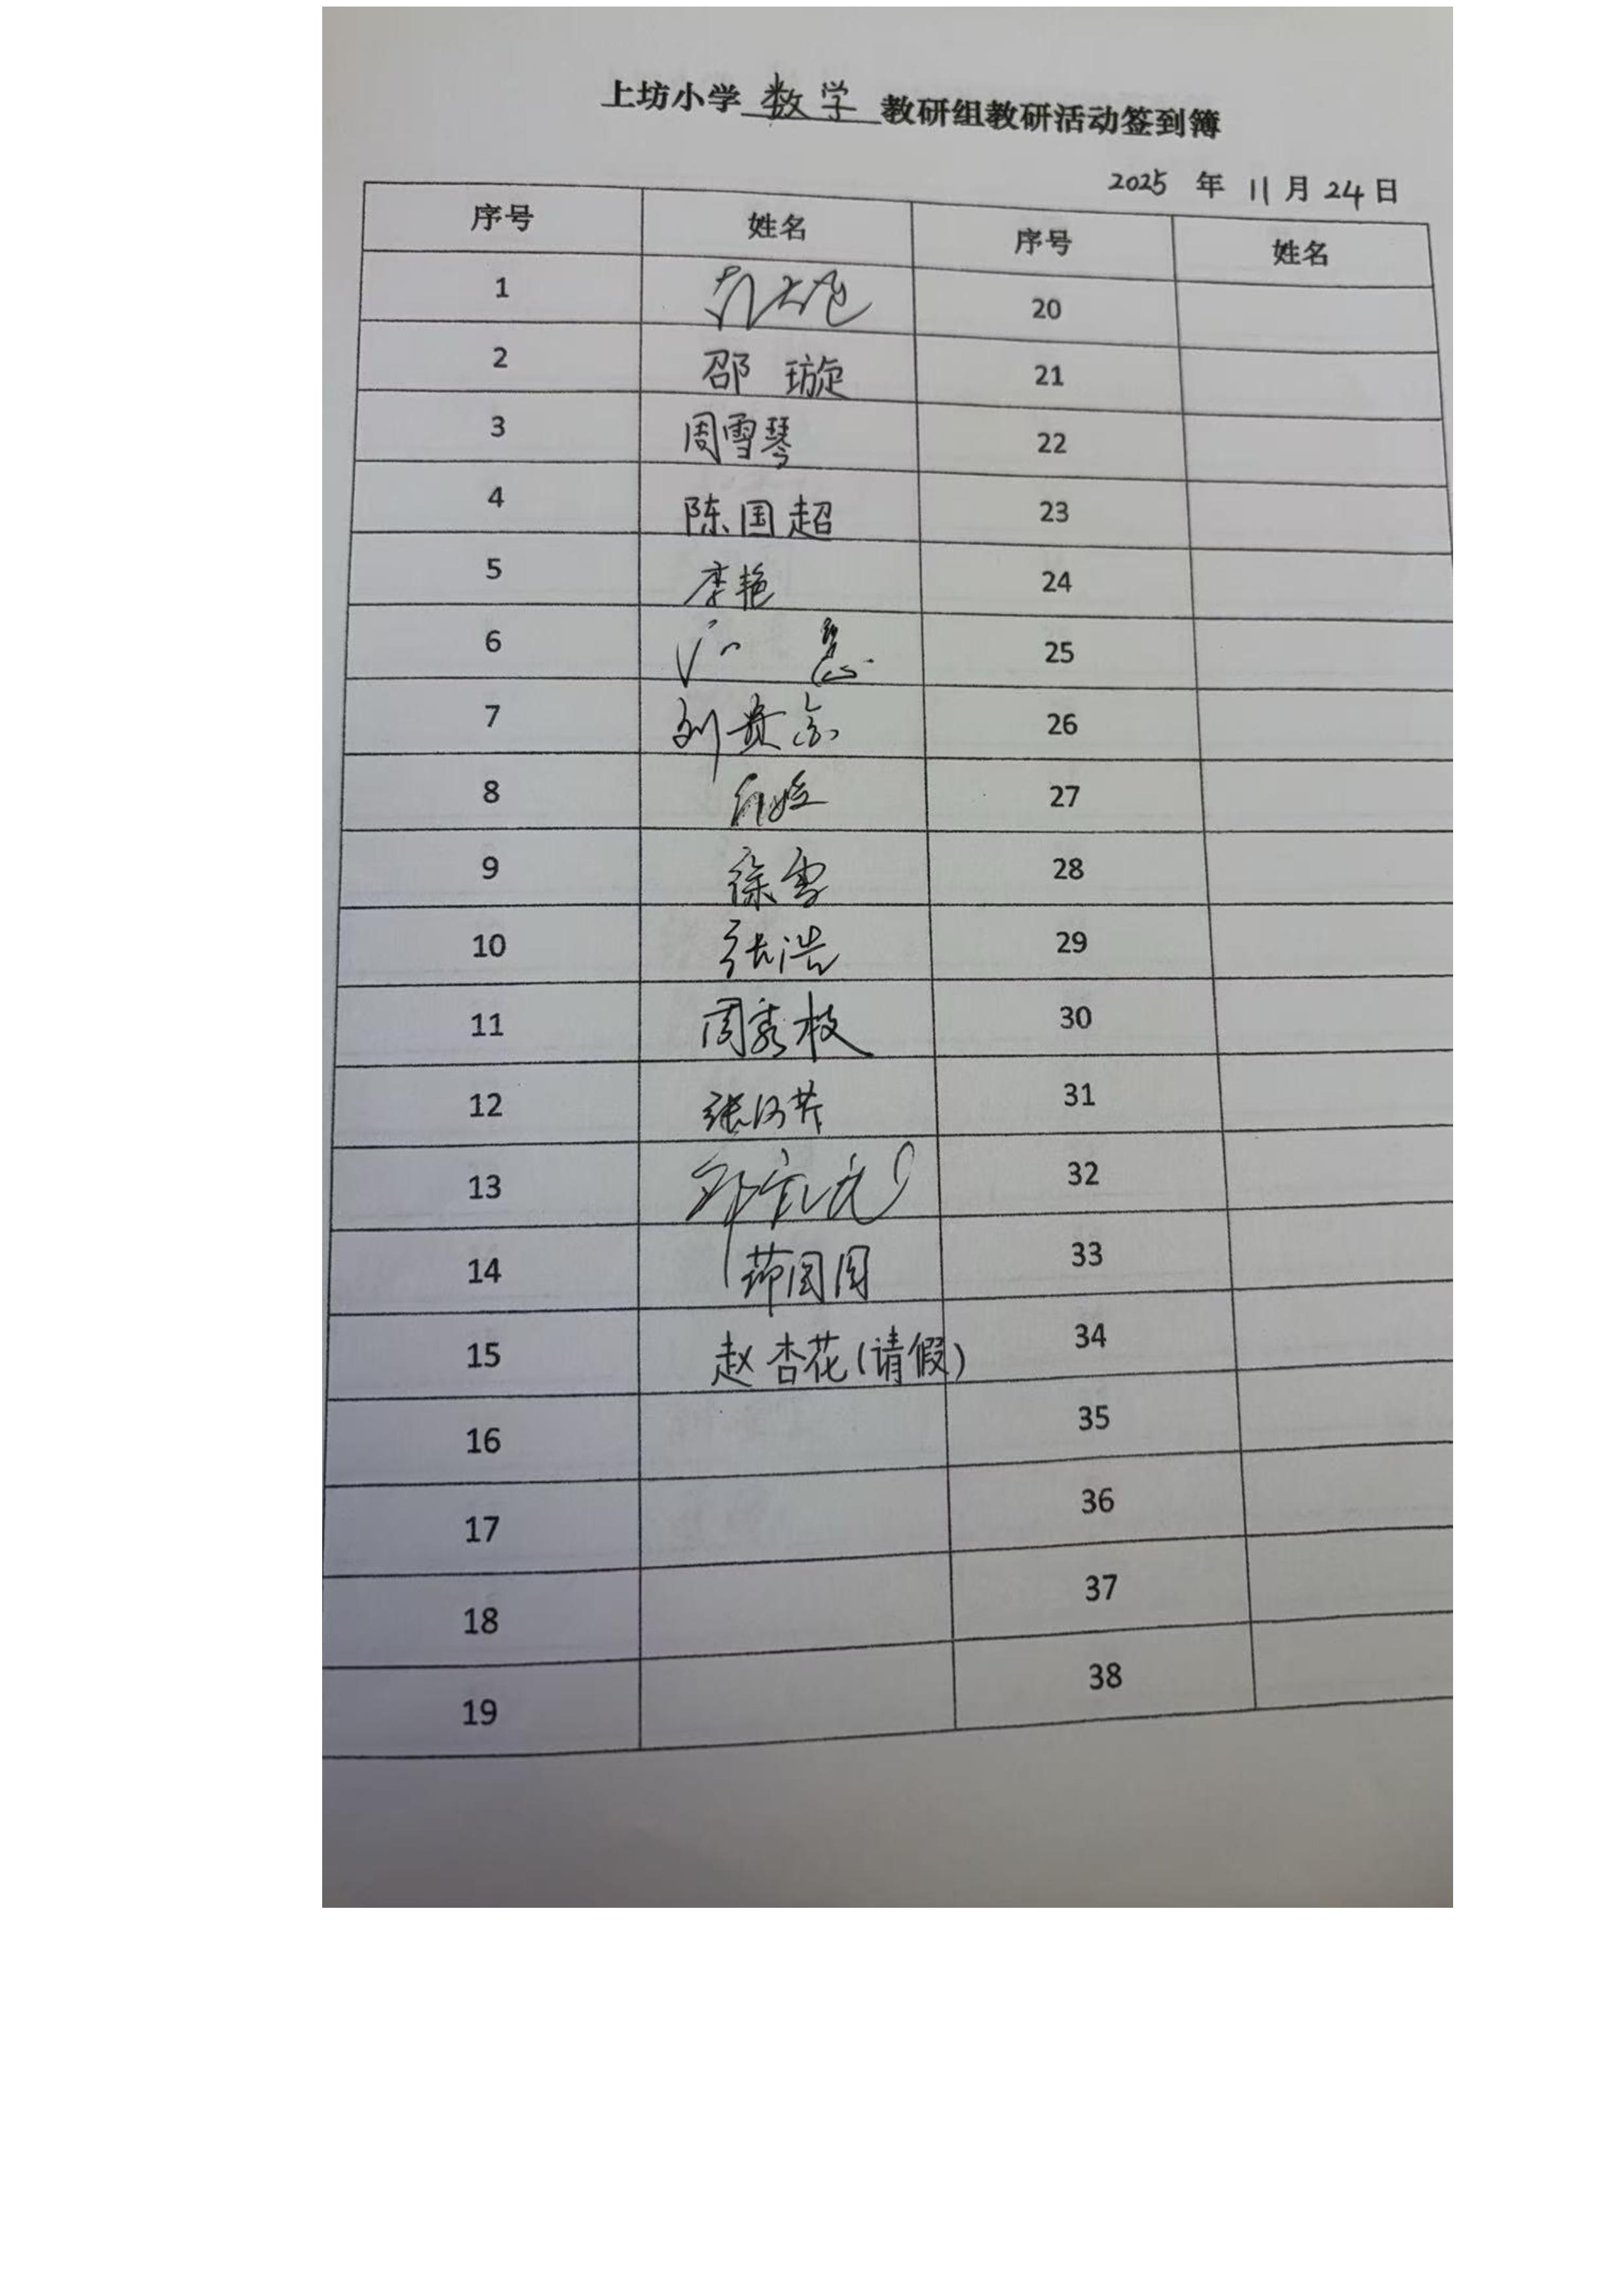 上坊小学 数学 教研组教研活动签到簿
2025 年 11 月 24 日
序号 姓名 序号 姓名
1 20
2 邵璇 21
3 周雪琴 22
4 陈国超 23
5 李艳 24
6 25
7 刘贵 26
8 27
9 徐雪 28
10 张浩 29
11 周秀枝 30
12 张 31
13 32
14 33
15 赵杏花(请假) 34
16 35
17 36
18 37
19 38